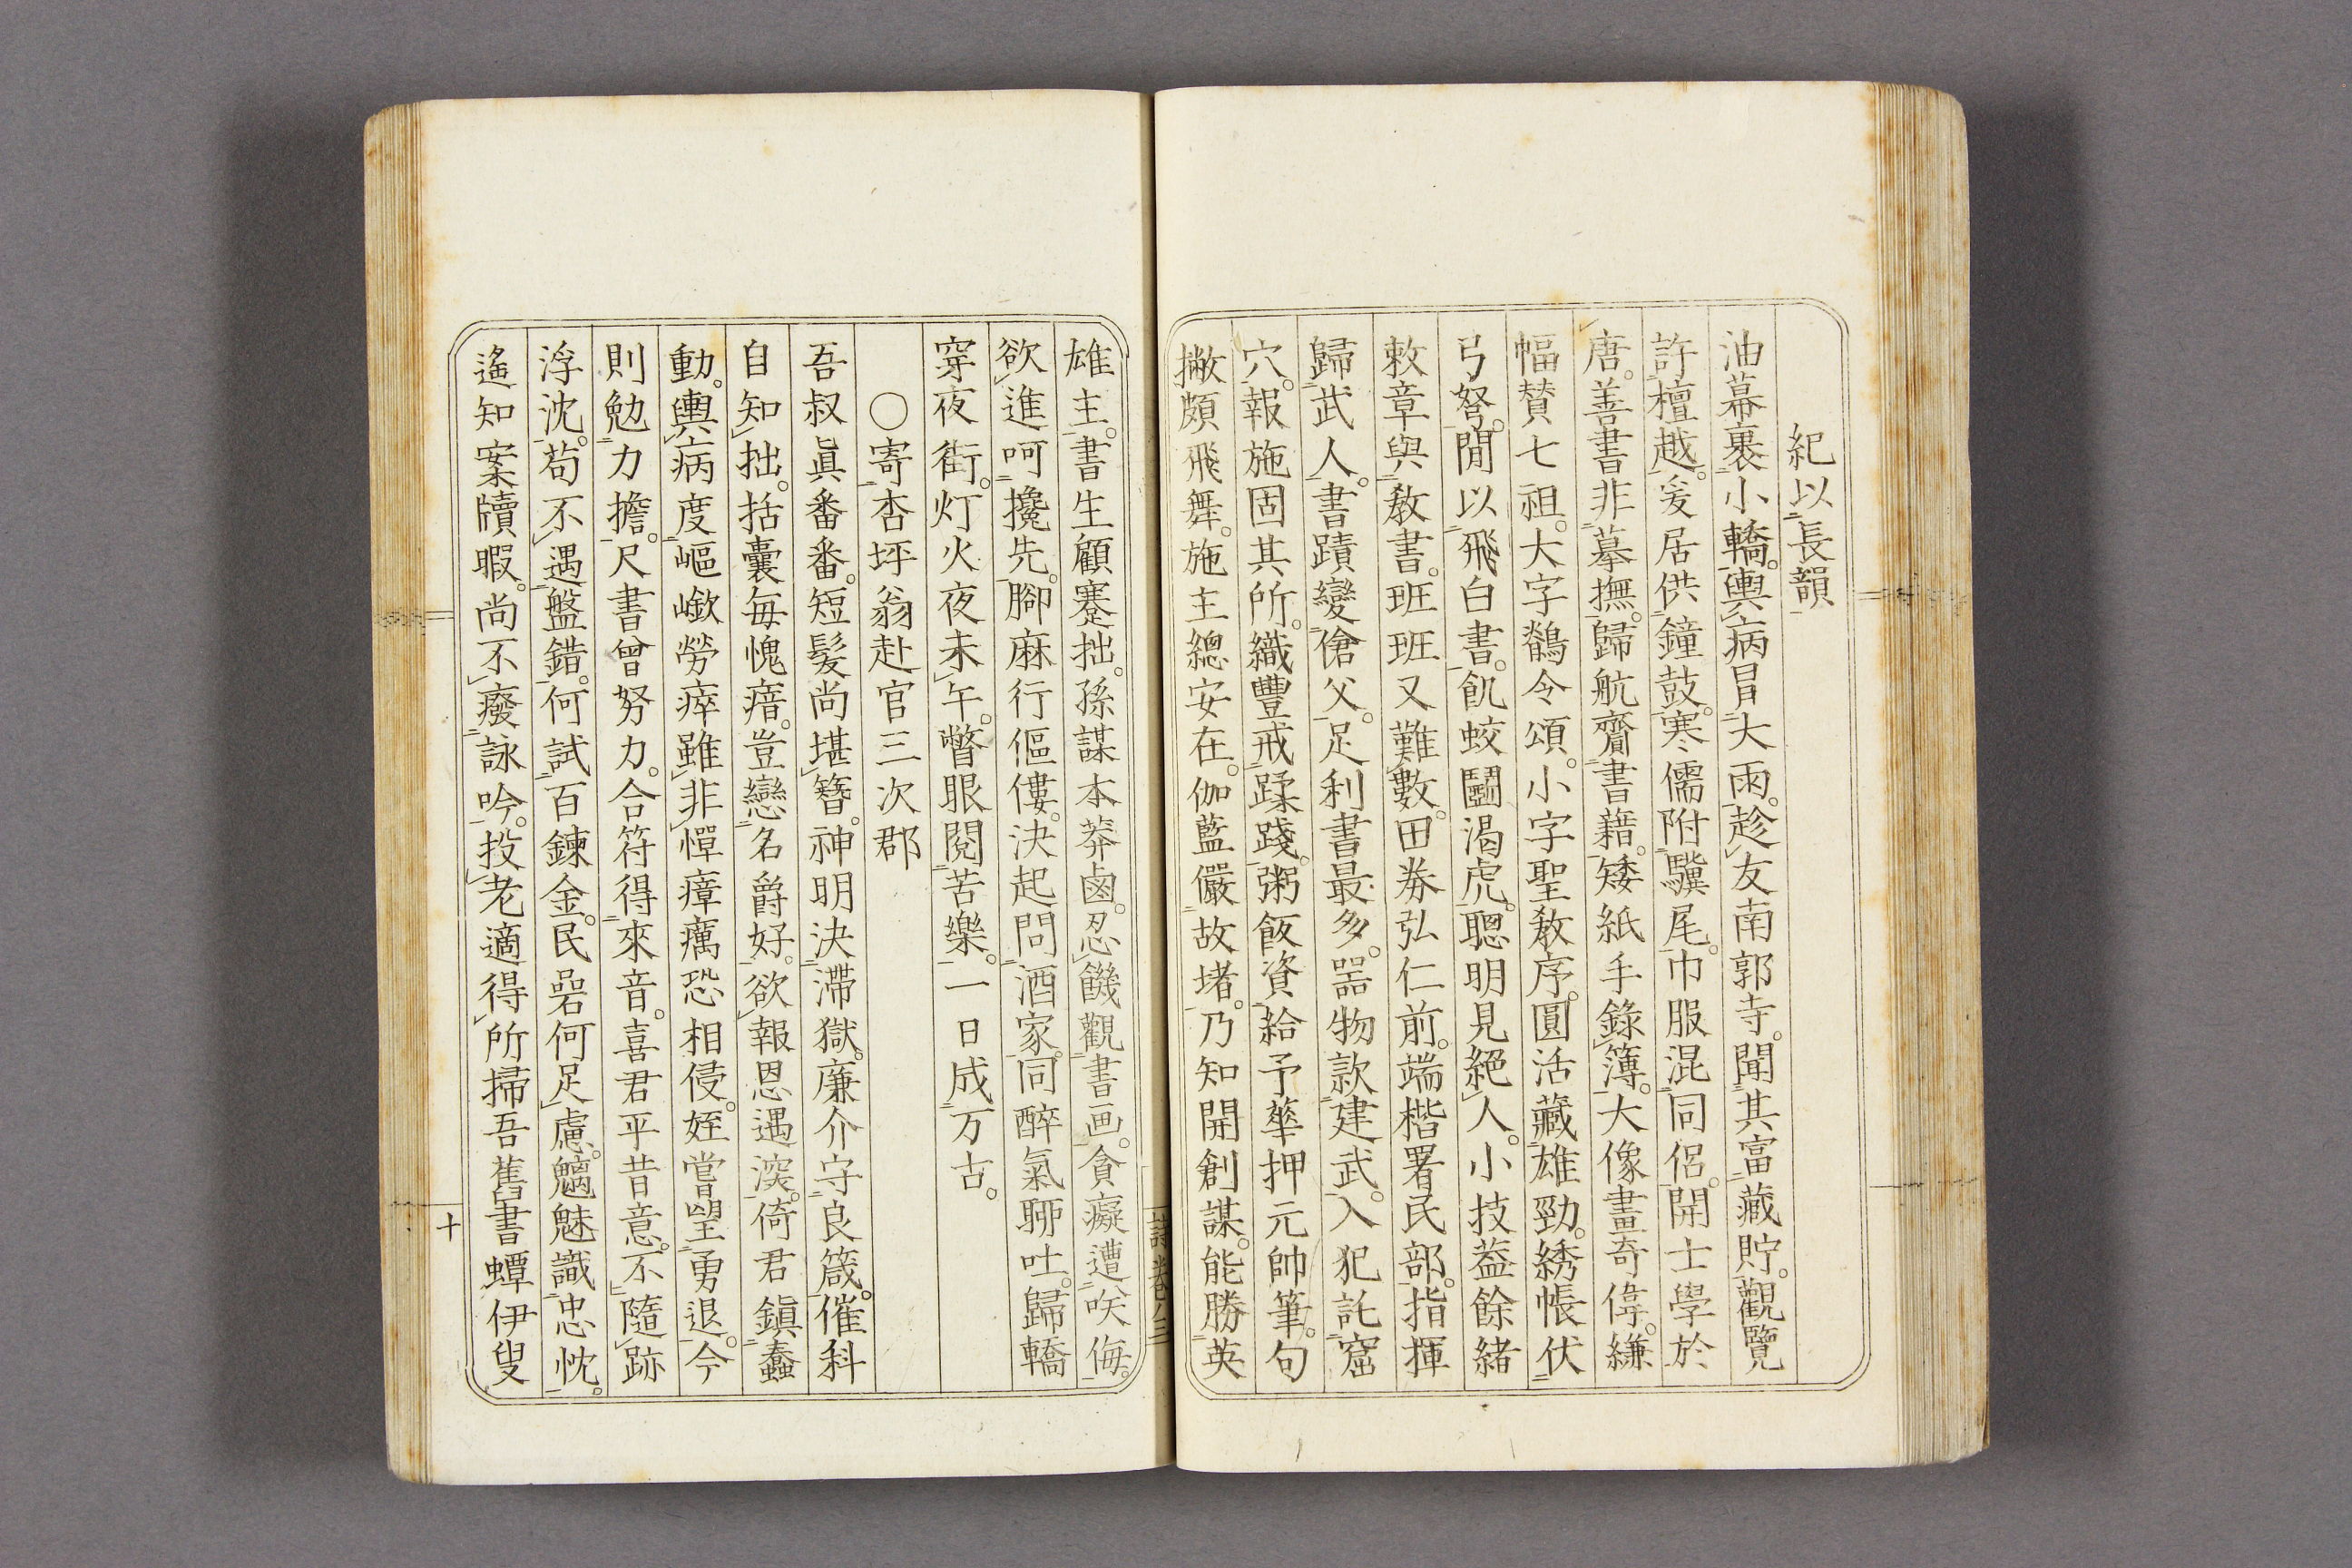 紀以長韻
油幕裹小轎。輿病冒大雨。趁友南郭寺。聞其富藏貯。觀覽
許檀越。爰居供鐘鼓。寒儒附驥尾。巾服混同侶。開士學於
唐。善書非摹撫。歸航齎書籍。矮紙手錄簿。大像畫奇偉。縑
幅贊七祖。大字鶺令頌。小字聖教序。圓活藏雄勁。綉帳伏
弓弩。間以飛白書。飢蛟鬪渴虎。聰明見絕人。小技葢餘緒
敕章與教書。班班又難數。田券弘仁前。端楷署民部。指揮
歸武人。書蹟變傖父。足利書最多。噐物款建武。入犯託窟
穴。報施固其所。織豐戒蹂踐。粥飯資給予。華押元帥筆。句
撇頗飛舞。施主總安在。伽藍儼故堵。乃知開創謀。能勝英
雄主。書生顧蹇拙。孫謀本莽鹵。忍饑觀書画。貪癡遭咲侮。
欲進呵攙先。腳麻行傴僂。決起問酒家。同醉氣聊吐。歸轎
穿夜街。灯火夜未午。瞥眼閱苦樂。一日成万古。
○寄杏坪翁赴官三次郡
吾叔眞番番。短髮尚堪簪。神明決滯獄。廉介守良箴。催科
自知拙。括囊每愧瘖。豈戀名爵好。欲報恩遇深。倚君鎭蠢
動。輿病度嶇嶔。勞瘁雖非憚。瘴癘恐相侵。姪嘗望勇退。今
則勉力擔。尺書曾努力。合符得來音。喜君平昔意。不隨跡
浮沈。苟不遇盤錯。何試百鍊金。民碞何足慮。魑魅識忠忱。
遙知案牘暇。尚不廢詠吟。投老適得所掃吾舊書蟫伊叟
詩卷八三
十